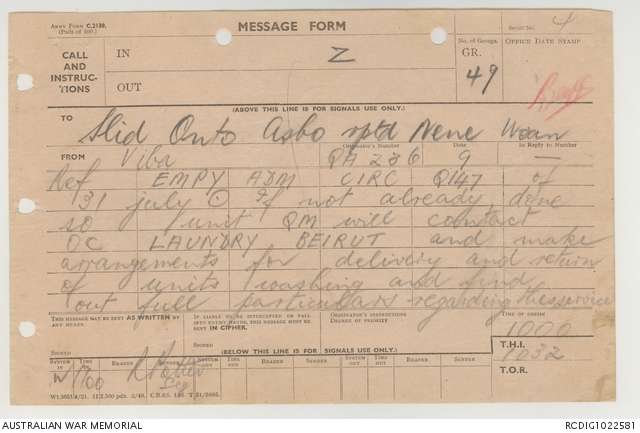 ARMY FORM C.2138.
(Pads of 100.)
MESSAGE FORM
Serial No. 4
CALL
AND
INSTRUC-
TIONS
IN
Z
OUT
No. of Groups.
GR.
49
OFFICE DATE STAMP
(ABOVE THIS LINE IS FOR SIGNALS USE ONLY.)
TO
Slid Onto Asbo rptd Nene Woan
FROM
Viba
Originator's Number
QA 286
Date
9
In Reply to Number
—
Ref EMPY ADM CIRC Q147 of
31 july ⊙ If not already done
so unit QM will contact
OC LAUNDRY BEIRUT and make
arrangements for delivery and return
of units washing and find
out full particulars regarding this service
THIS MESSAGE MAY BE SENT AS WRITTEN BY
ANY MEANS.
IF LIABLE TO BE INTERCEPTED OR FALL
INTO ENEMY HANDS, THIS MESSAGE MUST BE
SENT IN CIPHER.
ORIGINATOR'S INSTRUCTIONS
DEGREE OF PRIORITY
TIME OF ORIGIN
1000
SIGNED
SIGNED
(BELOW THIS LINE IS FOR SIGNALS USE ONLY.)
T.H.I.
1032
T.O.R.
SYSTEM IN
TIME IN
READER
SENDER
SYSTEM OUT
TIME OUT
READER
SENDER
SYSTEM OUT
TIME OUT
READER
SENDER
1100
AUSTRALIAN WAR MEMORIAL
RCDIG1022581